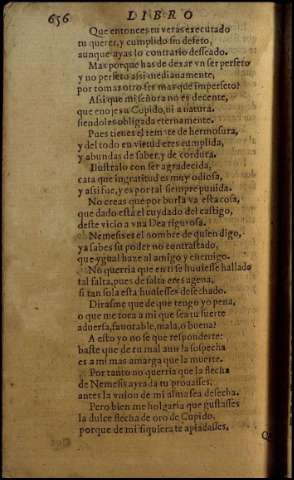 656 LIBRO
Que entonces tu veras executado
tu querer, y cumplido sin defeto,
aunque ayas lo contrario desseado.
Mas porque has de dexar vn ser perfeto
y no perfeto assi medianamente,
por tomar otro ser mas que imperfeto?
Assi que mi señora no es decente,
que enoje su Cupido, ni a natura
siendoles obligada eternamente.
Pues tienes el remate de hermosura,
y del todo en virtud eres cumplida,
y abundas de saber, y de cordura.
Ilustralo con ser agradecida,
cata que ingratitud es muy odiosa,
y assi fue, y es por tal siempre punida.
No creas que por burla va esta cosa,
que dado està el cuydado del castigo,
deste vicio a vna Dea rigurosa.
Nemesis es el nombre de quien digo,
ya sabes su poder no contrastado,
que ygual haze al amigo y enemigo.
No querria que en ti se huuiesse hallado
tal falta, pues de falta eres agena,
si tan sola esta huuiesses desechado.
Dirasme que de que tengo yo pena,
o que me toca a mi que sea tu suerte
aduersa, fauorable, mala, o buena?
A esto yo no se que responderte:
baste que de tu mal aun la sospecha
es a mi mas amarga que la muerte.
Por tanto no querria que la flecha
de Nemesis ayrada tu prouasses,
antes la vision de mi alma sea desecha.
Pero bien me holgaria que gustasses
la dulce flecha de oro de Cupido,
porque de mi siquiera te apiadasses.